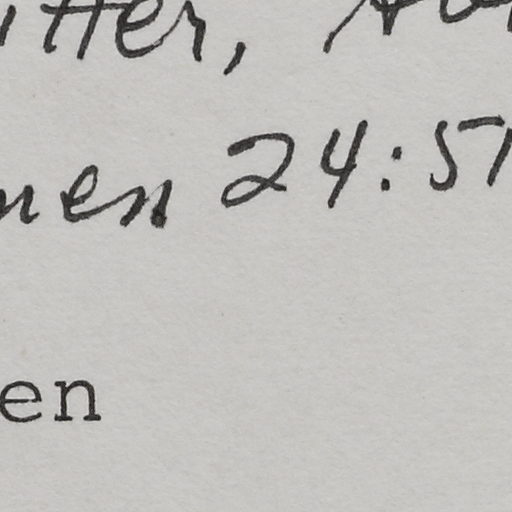 itter,
men 24:51
en